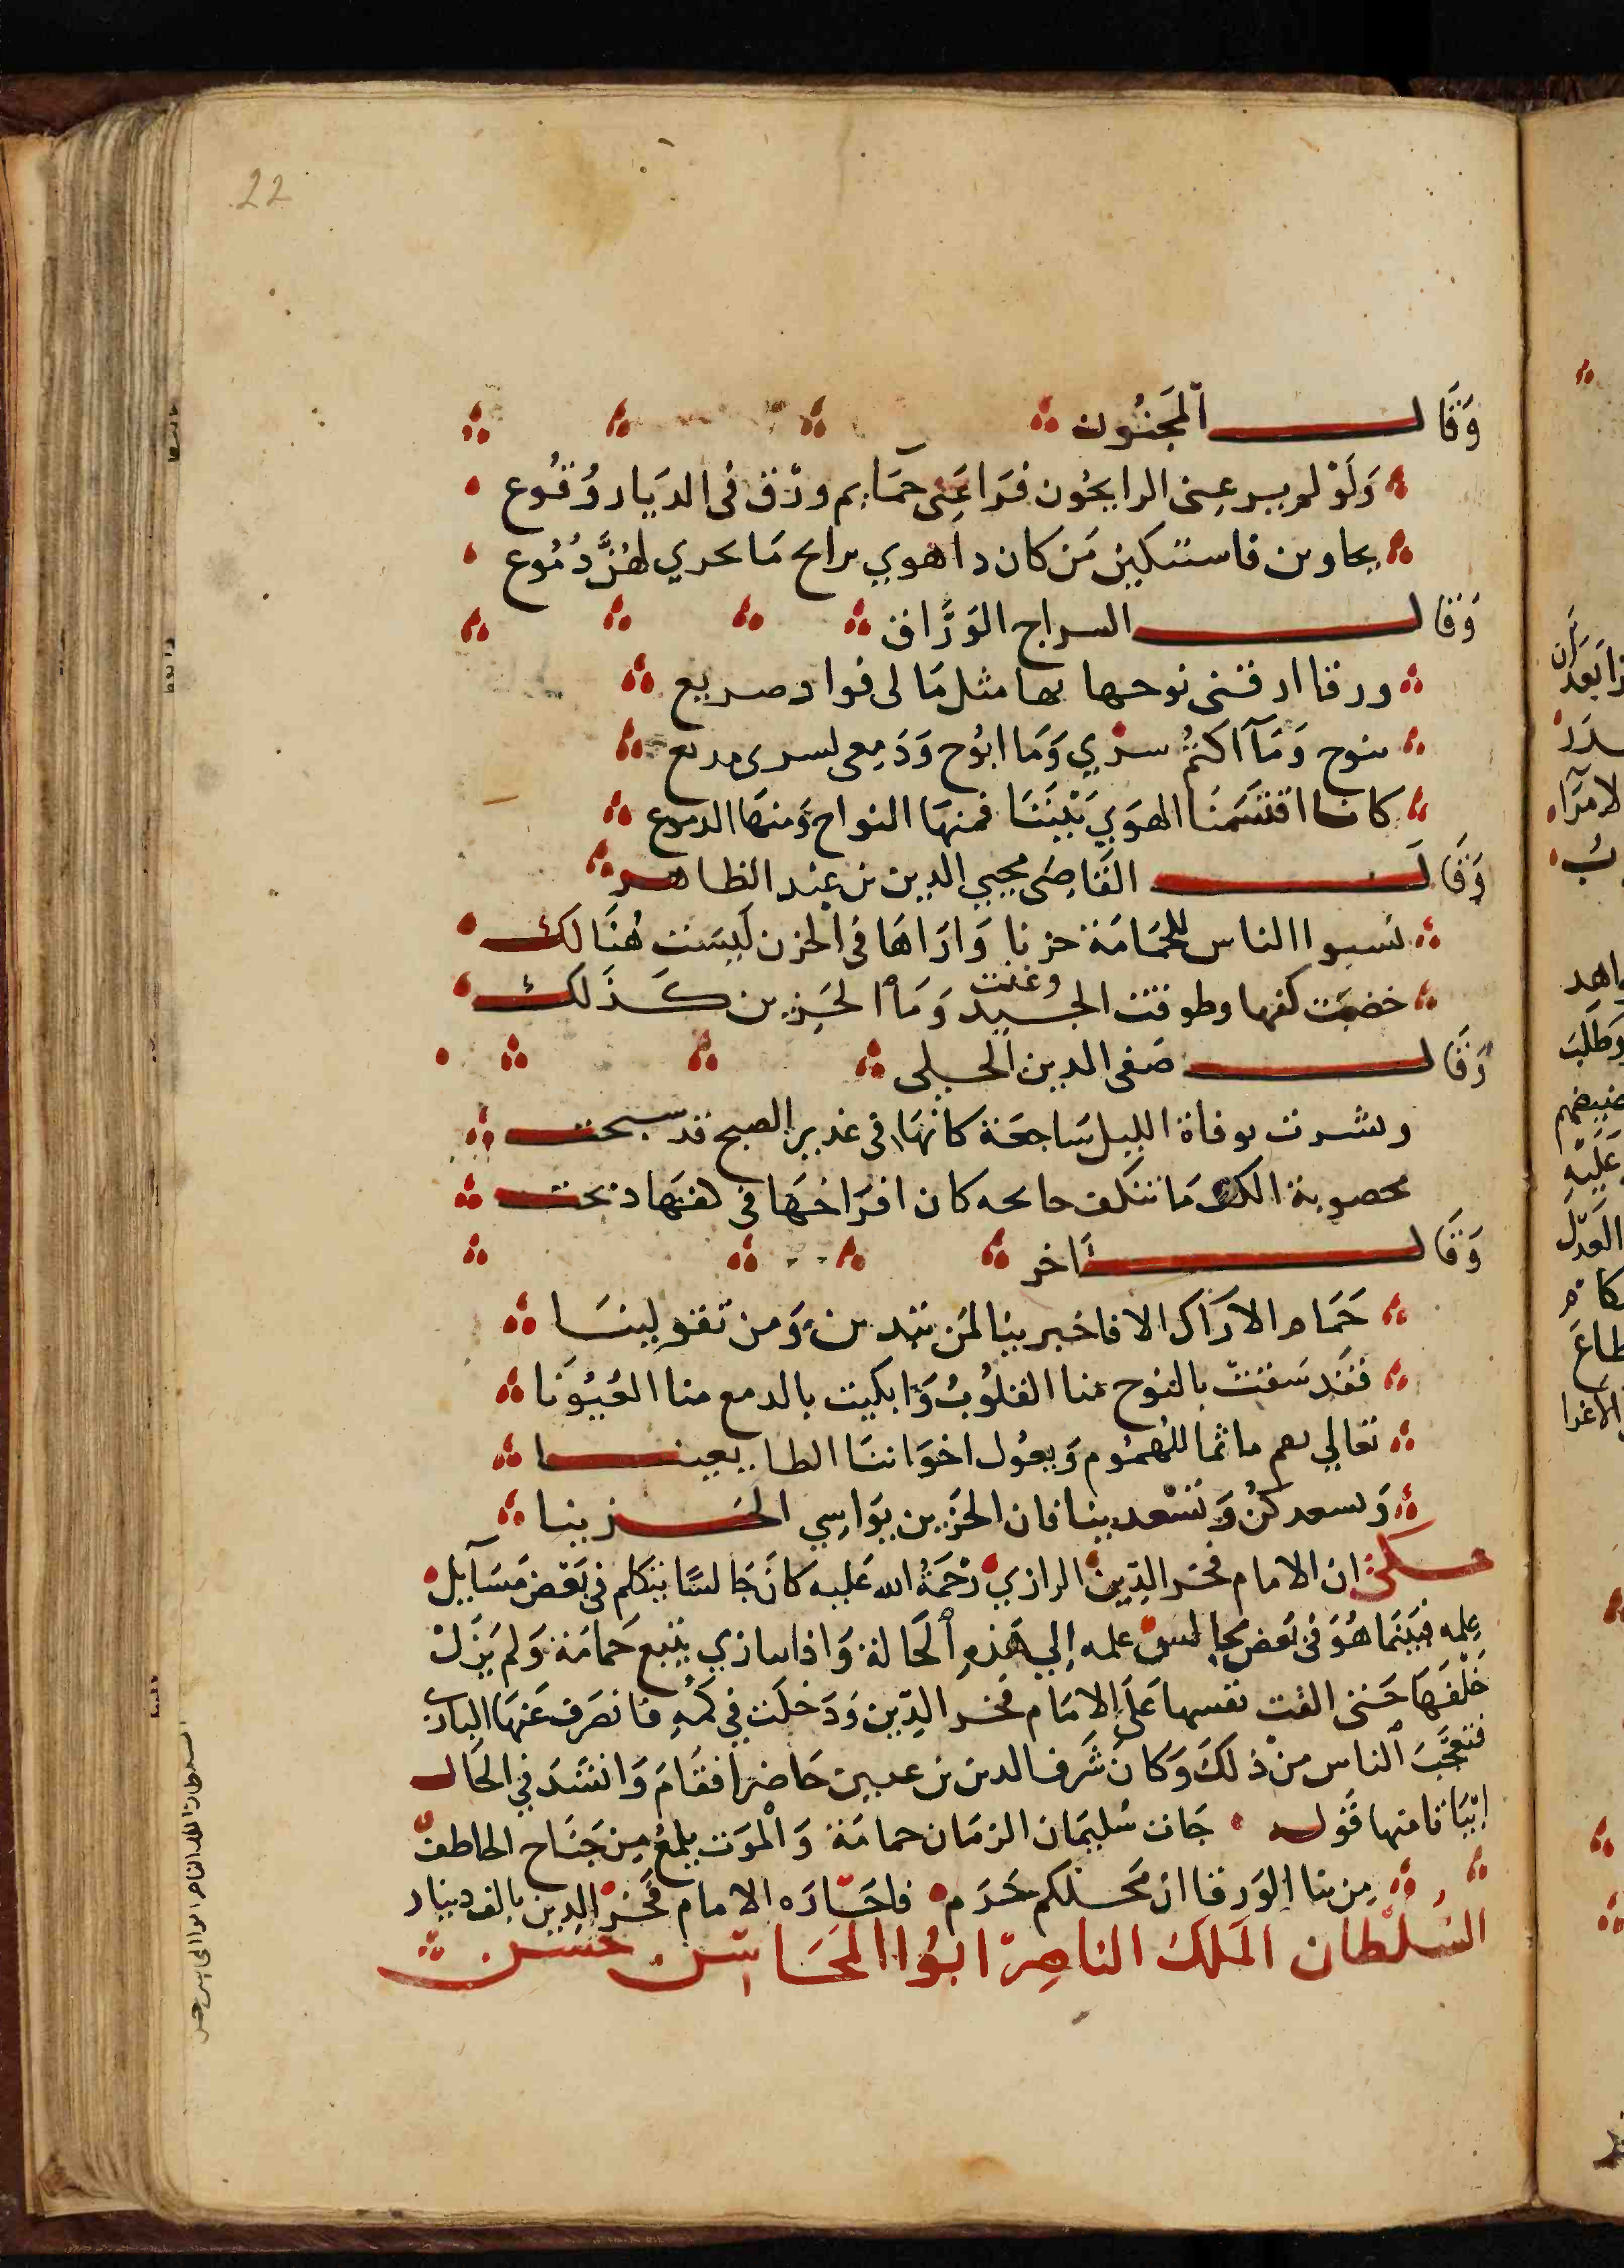 22
وَقَال المَجنُون
وَلَوْ لم يرعنى الرايحُون فرَاعَنِى حمَايم ورْق فى الديَار وُقُوع
يجاوبن فاستبكين مَن كان ذا هوي نوايح مَا تجري لهُنَّ دُمُوع
وَقال السراج الوَرَّاق
ورقا ارقتنى نوحها بها مثل مَا لى فواد صريع
تنوح وَمَا اكتمُ سرّي وَمَا ابوُح وَدَمِعى لسرى مديع
كانا اقتسَمنَا الهوَي بَيْننَا فمنهَا النواح وَمنهَا الدموع
وَقَال القَاضِى محيي الدين بن عبد الظاهر
نسبوا الناس للحمَامَة حزنا وَارَاهَا فى الحزن ليسَت هُنَالك
خضبت كفها وطوقت الجيد وغنت وَمَا الحَزين كَذَلك
وَقَال صَفى الدين الحلى
وبشرت بوفاة الليل سَاجعَة كانهَا فى غدير الصبح قد سبحت
مخضوبة الكف مَا تنكف نايحه كان افرَاخهَا فى كفهَا ذبحت
وَقَال آخر
حَمَام الارَاك الا فاخبرينا لمَن تندبين وَمن تعَولينَا
فقَد سَقتّ بالنوح منا القلوُبُ وَابكيت بالدمع منا العُيوُنَا
تعَالى نقم ماتما للهمُوم وَنعوُل اخوَاننَا الظاعينا
وَنسعدكنُ وَتسْعديننا فان الحَزين يوَاسِي الحَزينا
حكىَ ان الامام فخر الدِّين الرازي رَحْمَةُ الله عَليه كانَ جَالسًا يتكلم فى بَعْض مَسَآيل
عِلمه فبَينَما هُوَ فى بَعض مجَالس علمه إلي هَذِهِ الحَالة وَاذا ببازي يتبع حَمامَة وَلم يَزَلْ
خَلْفَهَا حَتى القت نفسها عَلَى الامَام فخر الدّين وَدَخلَت في كمّهِ فانصَرف عَنهَا البازى
فتعَجَّبَ الناس من ذلكَ وَكانَ شَرف الدين بن عنين حَاضرا فقَامَ وَانشَدَ في الحَال
ابْيَاتا منها قَوله جَات سُليمَان الزمَان حمامَة وَالموَت يلمَعُ مِن جَنَاح الخاطف
مِن نبا الوَرقا ان مَحَلكم حَرَم فاجَازه الامام فَخر الدين بالف دينار
السُلطان المَلكَ الناصِر ابوُا المَحَاسن حَسَن
السلطان الملك الناصر ابوا المحاسن حسن